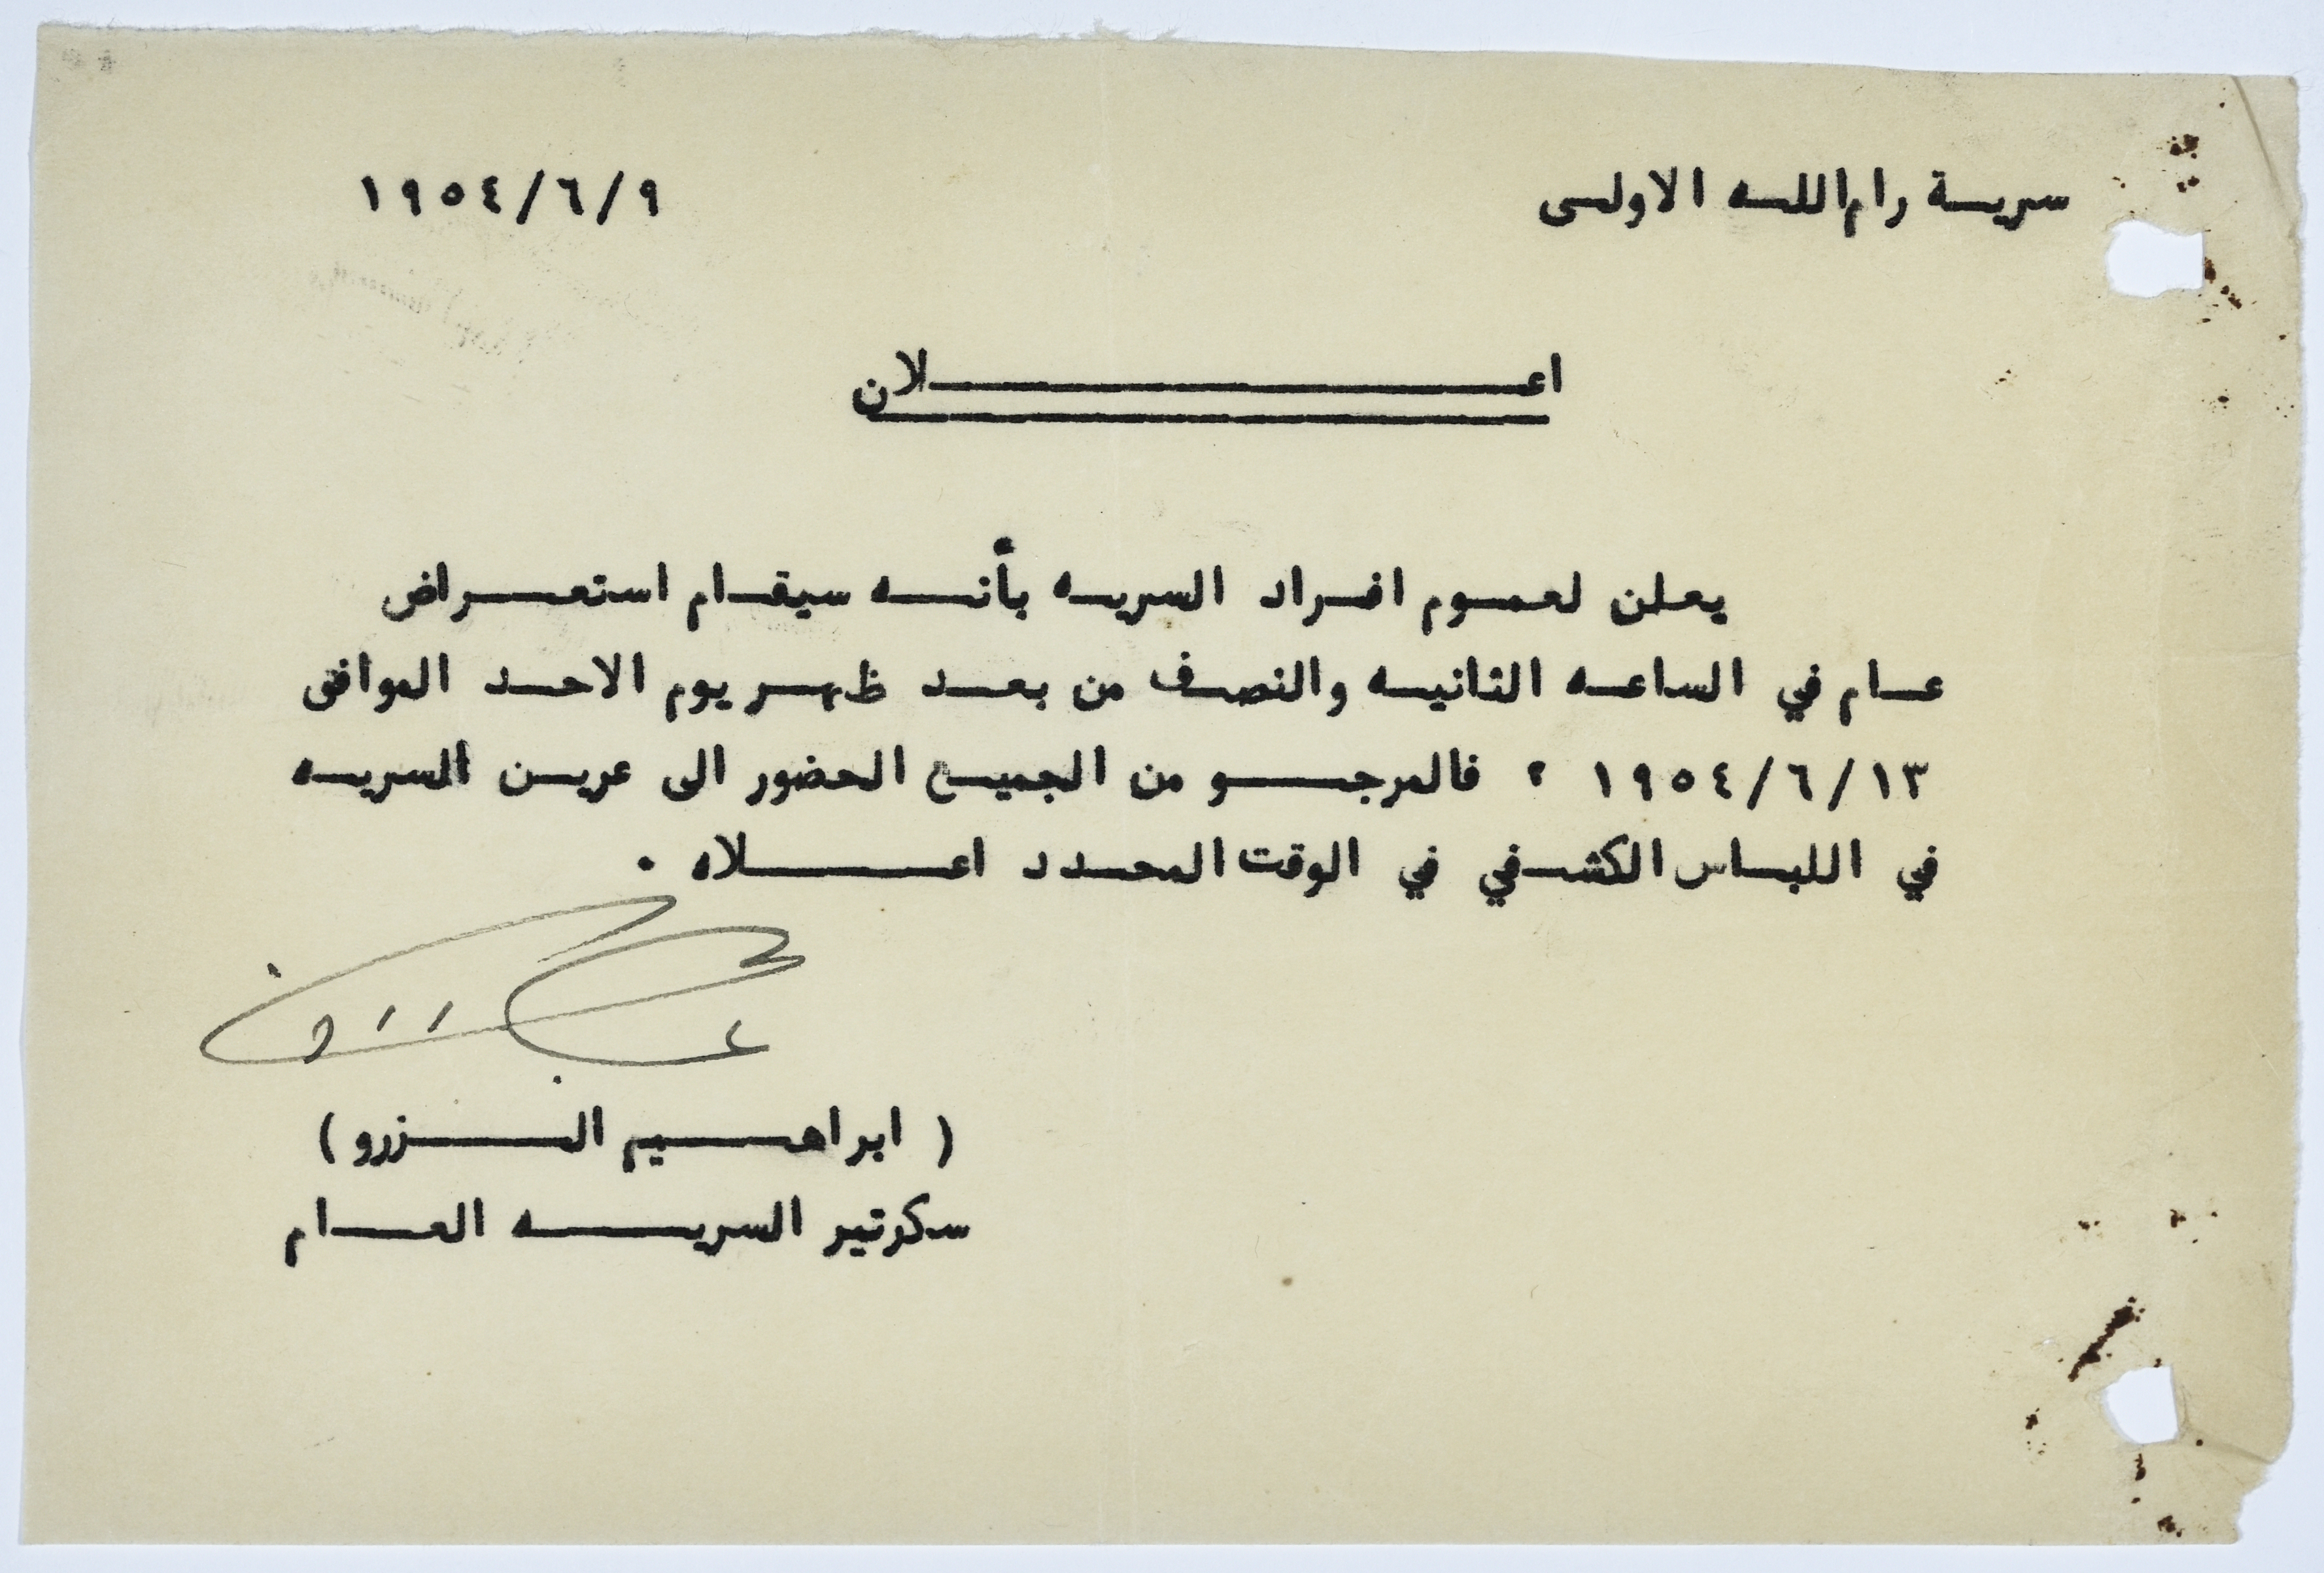 سرية رام الله الاولى ١٩٥٤/٦/٩
اعلان
يعلن لعموم افراد السريه بأنه سيقام استعراض
عام في الساعه الثانيه والنصف من بعد ظهر يوم الاحد الموافق
١٩٥٤/٦/١٣ ؟ فالمرجو من الجميع الحضور الى عرين السريه
في اللباس الكشفي في الوقت المحدد اعلاه .
( ابراهيم الزرو )
سكرتير السريه العام